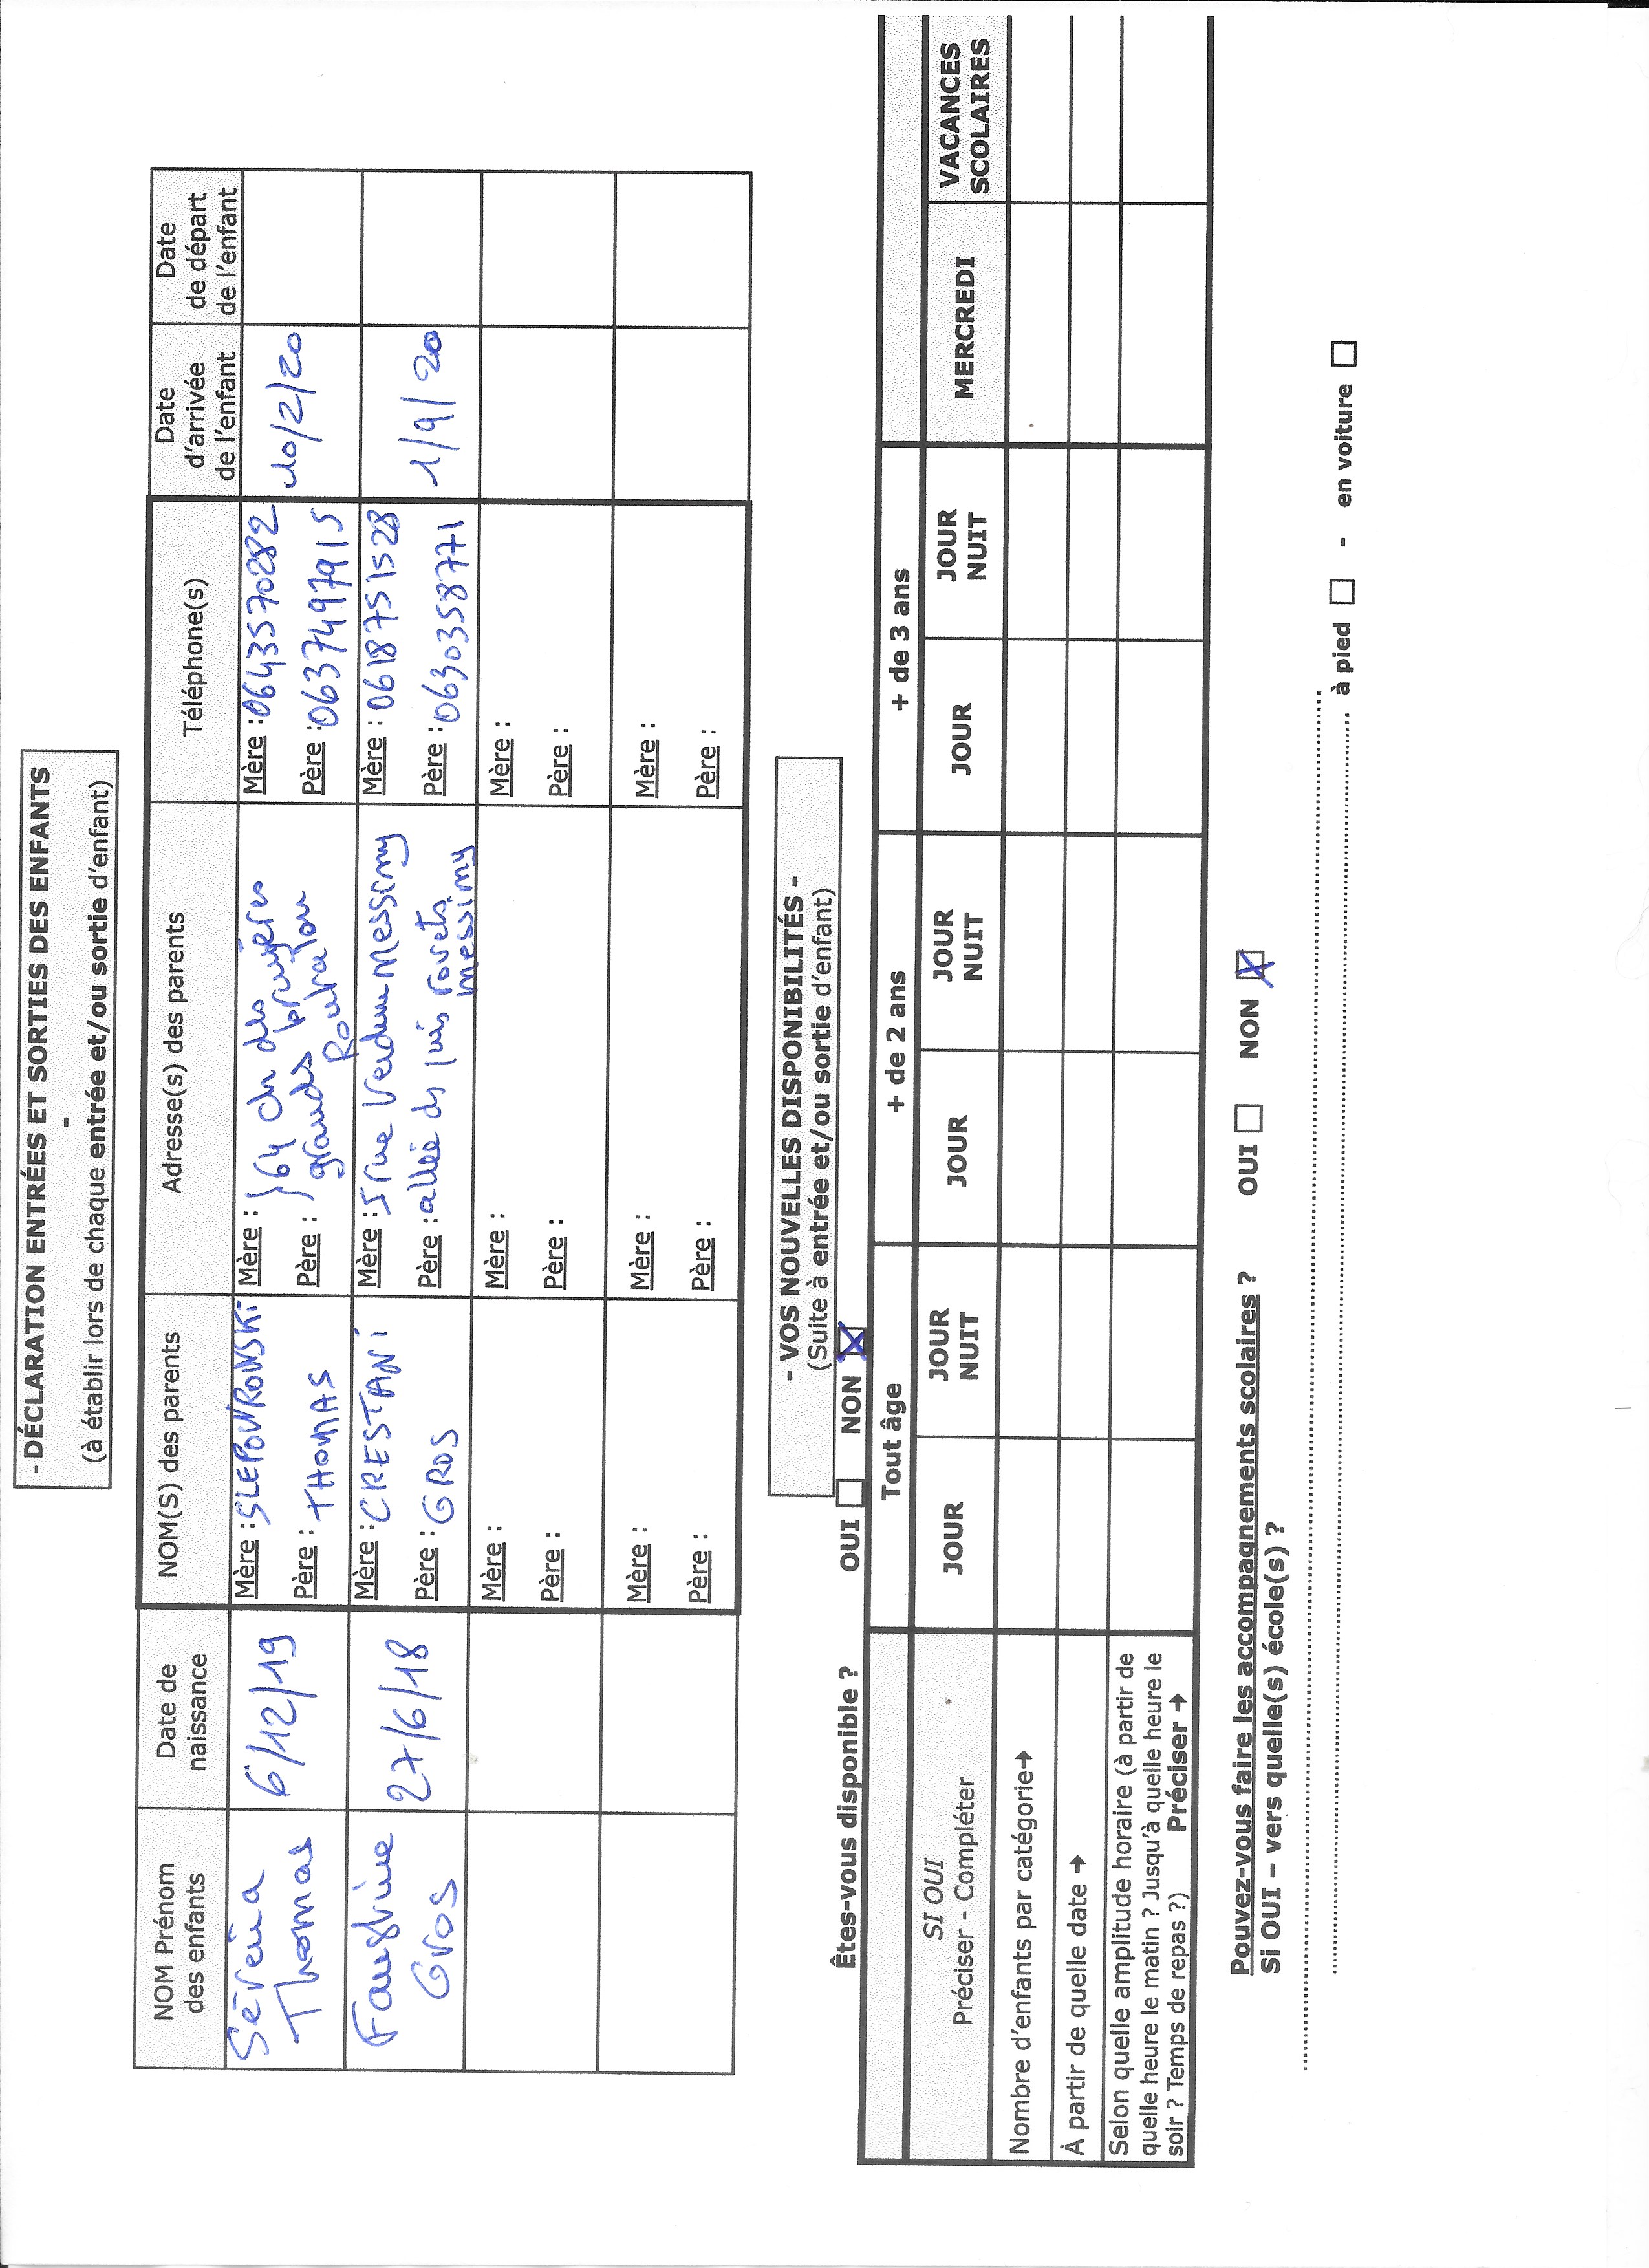 - DÉCLARATION ENTRÉES ET SORTIES DES ENFANTS
-
(à établir lors de chaque entrée et/ou sortie d'enfant)
NOM Prénom des enfants
Date de naissance
NOM(S) des parents
Adresse(s) des parents
Téléphone(s)
Date d'arrivée de l'enfant
Date de départ de l'enfant
Séréna Thomas
6/12/19
Mère : SLEPOWRONSKI
Père : THOMAS
Mère :
Père :
} 64 ch des grandes bruyères
Mère : 0643570282
Père : 0637497915
10/2/20
Faustine Gros
27/6/18
Mère : CRESTANI
Père : GROS
Mère : 5 rue Verdun Messimy
Père : allée des rovets messimy
Mère : 0618751528
Père : 0630358771
1/9/20
Mère :
Père :
Mère :
Père :
Mère :
Père :
Mère :
Père :
Mère :
Père :
Mère :
Père :
- VOS NOUVELLES DISPONIBILITÉS -
(Suite à entrée et/ou sortie d'enfant)
Êtes-vous disponible ? OUI ☐ NON ☒
Tout âge
+ de 2 ans
+ de 3 ans
SI OUI
Préciser - Compléter
JOUR
JOUR NUIT
JOUR
JOUR NUIT
JOUR
JOUR NUIT
MERCREDI
VACANCES SCOLAIRES
Nombre d'enfants par catégorie➔
À partir de quelle date ➔
Selon quelle amplitude horaire (à partir de
quelle heure le matin ? Jusqu'à quelle heure le
soir ? Temps de repas ?) Préciser ➔
Pouvez-vous faire les accompagnements scolaires ? OUI ☐ NON ☒
Si OUI – vers quelle(s) école(s) ?
à pied ☐ - en voiture ☐